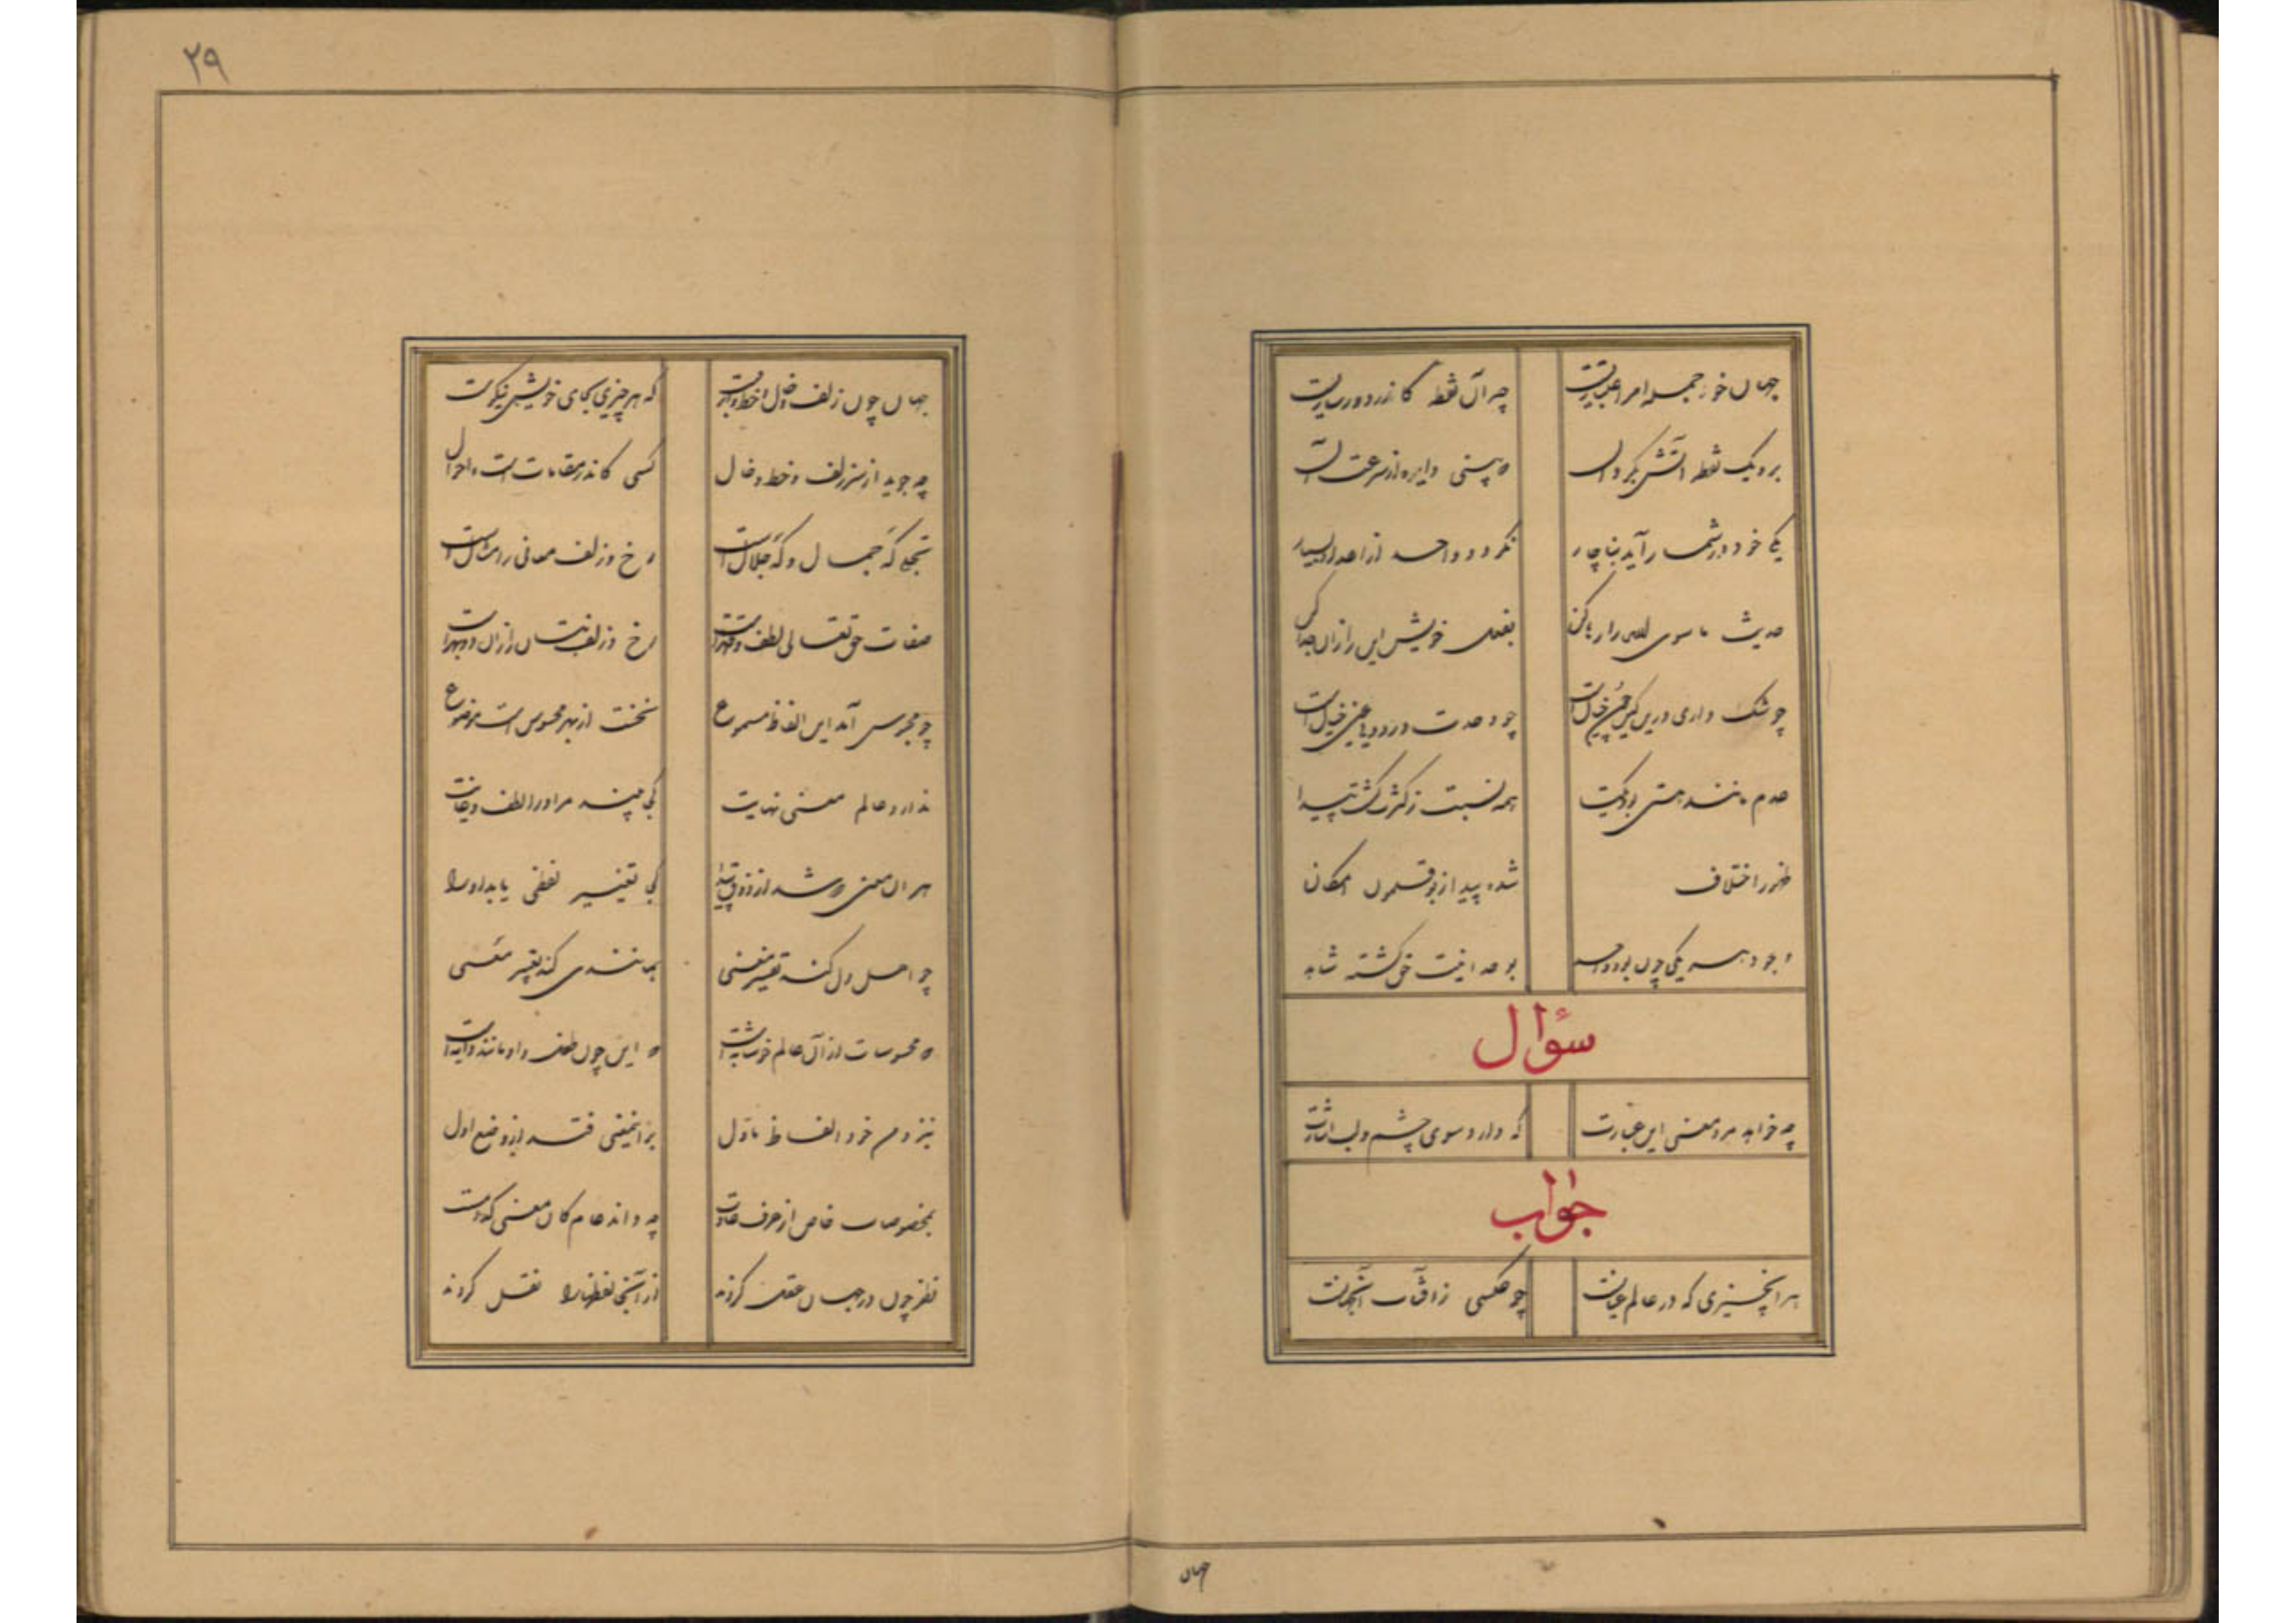 جهان خود جمله امر اعتباریست چو آن نقطه کاندر دور ساریست
برو یک نقطه آتش بگردان که بینی دایره از سرعت آن
یکی خود در شمار آید بناچار نگردد واحد از اعداد بسیار
حدیث ما سوی الله را رها کن بعقل خویش این را زان جدا کن
چو شک داری درین کین چون خیالست چو وحدت در دویی عین خیالست
عدم مانند هستی بود یکتا همه نسبت ز کثرت گشت پیدا
ظهور اختلاف شده پیدا ز بوقلمون امکان
وجود هر یکی چون بود واحد بوحدانیت حق گشته شاهد
سؤال
چه خواهد مرد معنی این عبارت که دارد سوی چشم و لب اشارت
جواب
هر آنچیزی که در عالم عیانست چو عکسی ز آفتاب آنجهانست
جهان
۲۹
جهان چون زلف و خال و خط و ابروست که هر چیزی بجای خویش نیکوست
چه جوید از سر زلف و خط و خال کسی کاندر مقامات است و احوال
تجلی گه جمال و گه جلال است رخ و زلف معانی را مثال است
صفات حق تعالی لطف و قهر است رخ و زلف بتان را زان دو بهر است
چو محسوس آمد این الفاظ مسموع نخست از بهر محسوس است موضوع
ندارد عالم معنی نهایت کجا بیند مر او را لفظ غایت
هر آن معنی که شد از ذوق پیدا کجا تعبیر لفظی یابد او را
چو اهل دل کند تفسیر معنی بمانندی کند تعبیر معنی
که محسوسات از آن عالم چو سایه است که این چون طفل و او مانند دایه است
بنزدم خود الفاظ ماول بر آن معنی فتد از وضع اول
بمحسوسات خاص از عرف عامست چه داند عام کان معنی کدامست
نظر چون در جهان عقل کردند از آنجا لفظها را نقل کردند